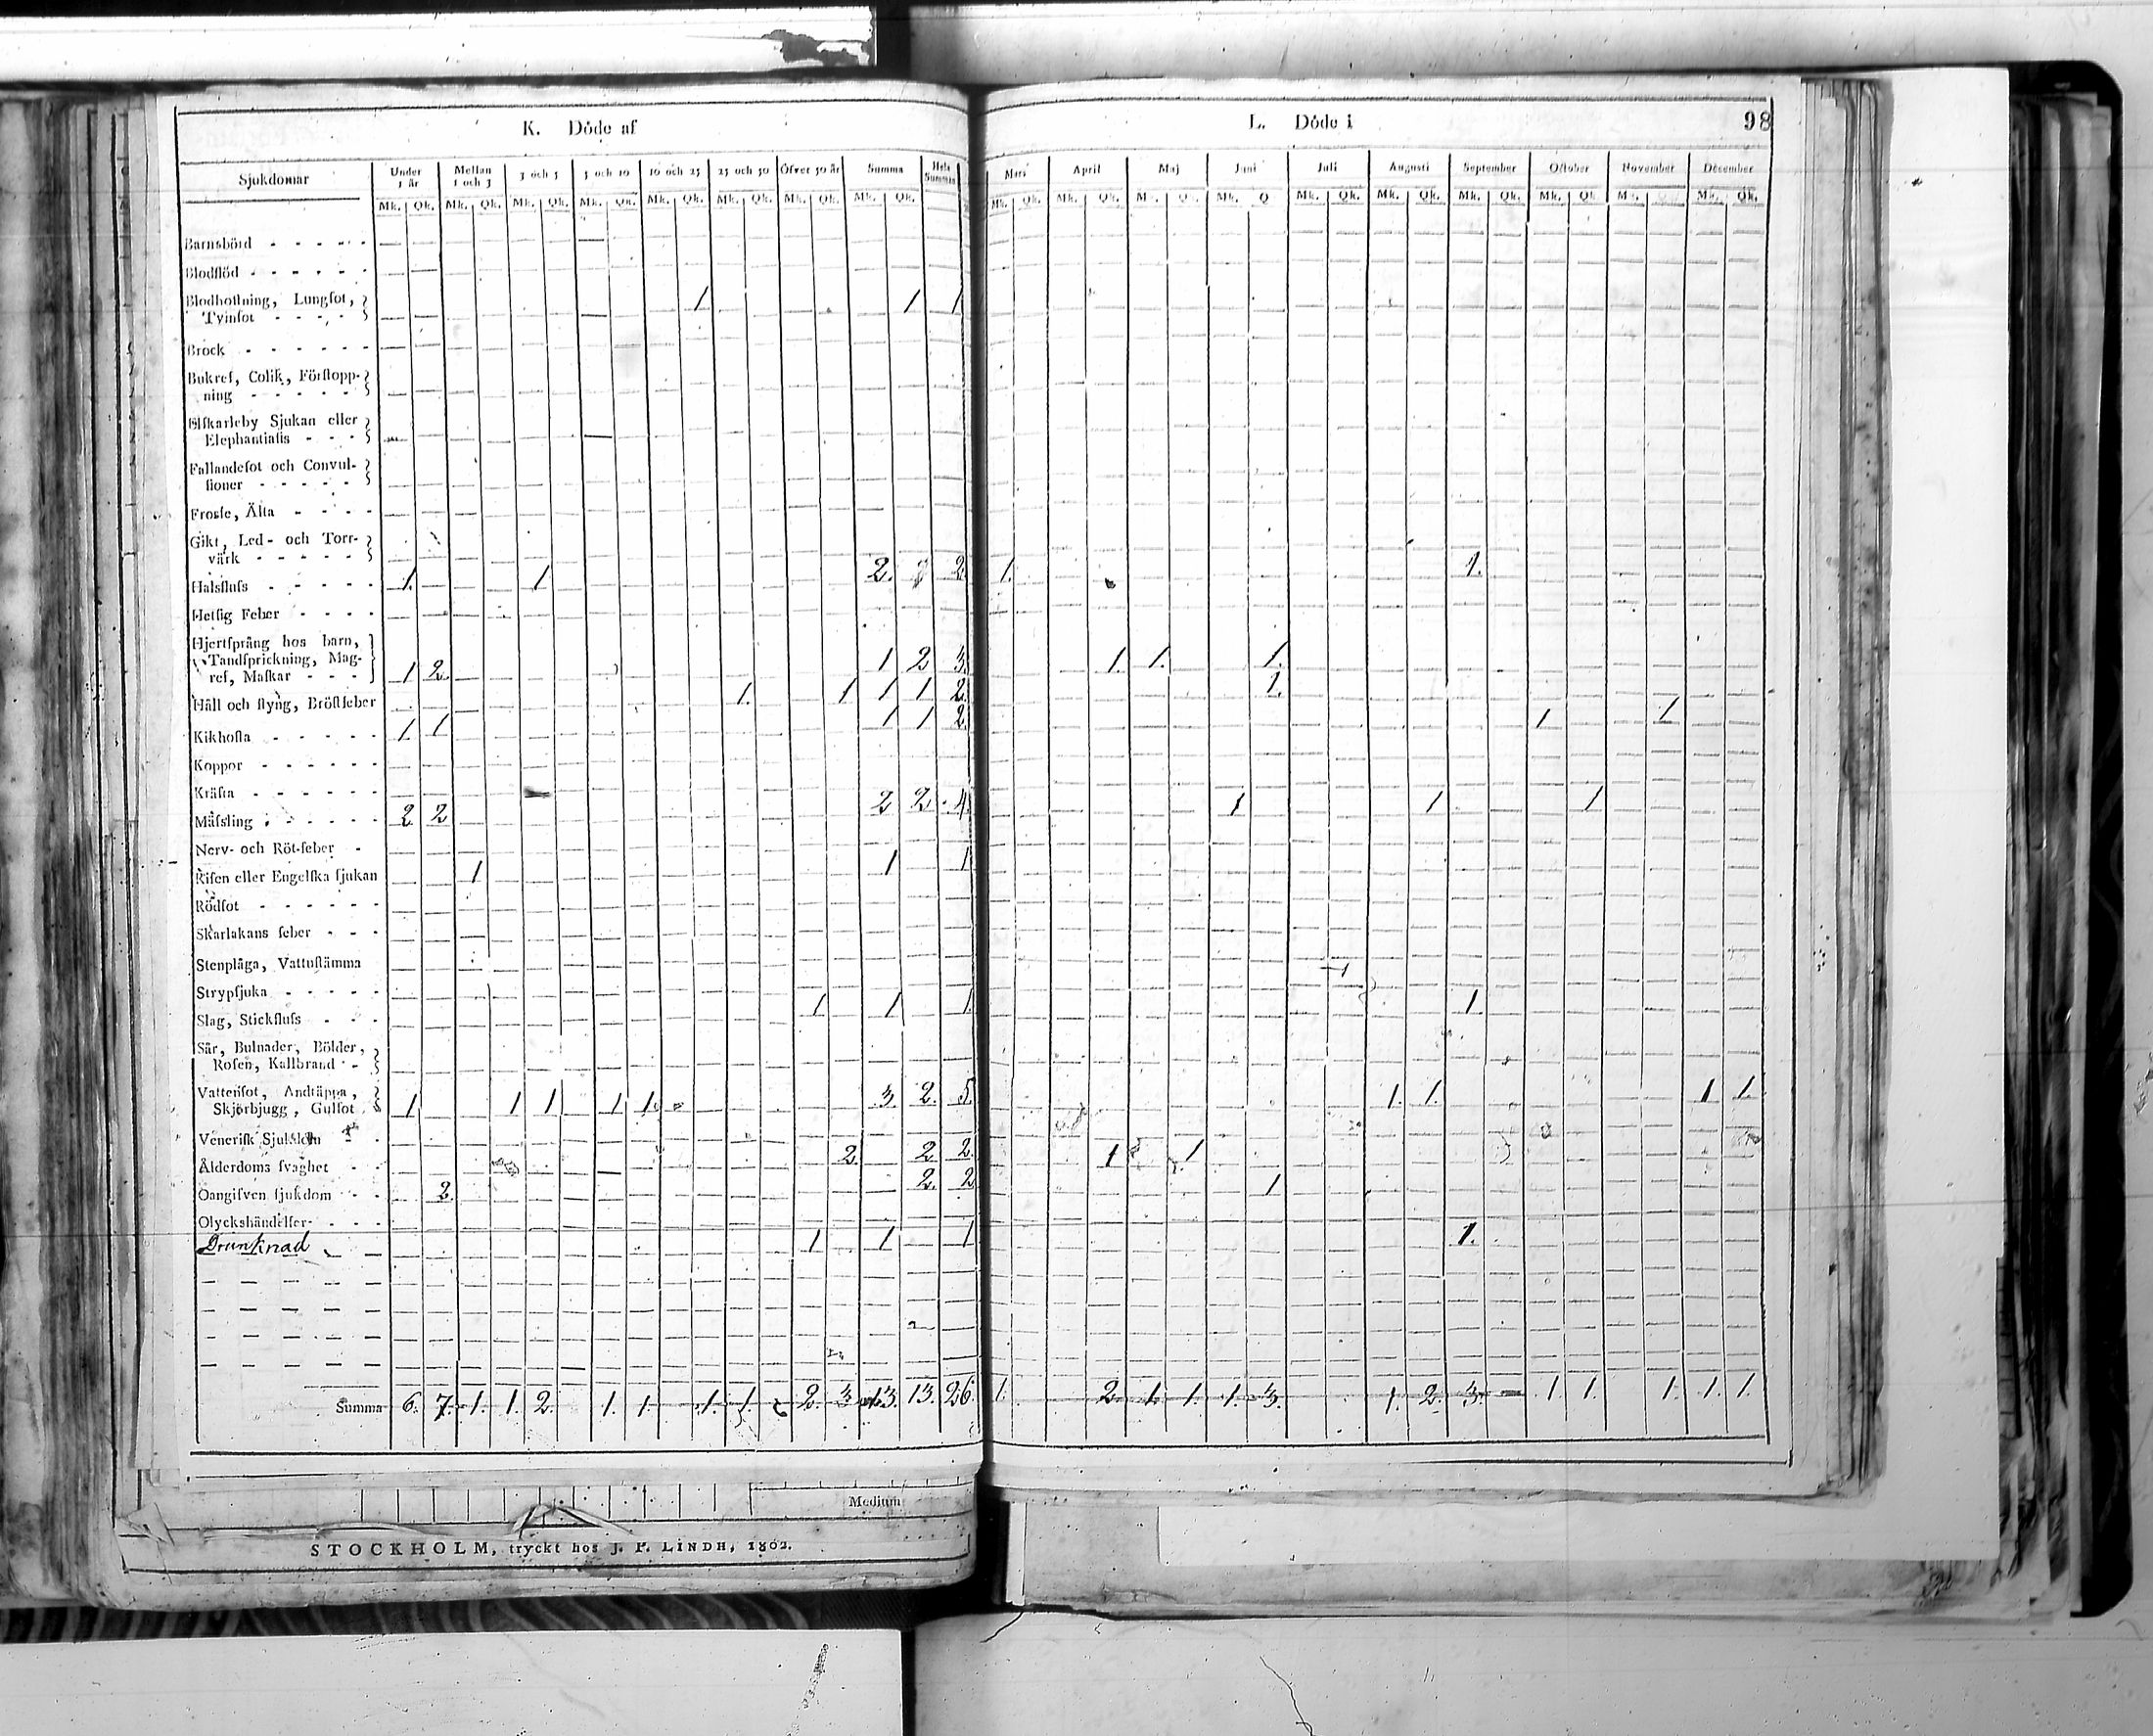 K. Döde af
L. Döde i 98
Sjukdomar Under 1 år Mellan 1 och 3 3 och 5 5 och 10 10 och 25 25 och 50 Öfver 50 år Summa Hela Summan Mars April Maj Juni Juli Augusti September October November December
Mk. Qk. Mk. Qk. Mk. Qk. Mk. Qk. Mk. Qk. Mk. Qk. Mk. Qk. Mk. Qk. Mk. Qk. Mk. Qk. Mk. Qk. Mk. Q Mk. Qk. Mk. Qk. Mk. Qk. Mk. Qk. Mk. Qk. Mk. Qk.
Barnsbörd
Blodflöd
Blodhoſtning, Lungſot,
Tvinſot 1 1 1
Brock
Bukref, Colik, Förſtopp-
ning
Elſkarleby Sjukan eller
Elephantiaſis
Fallandeſot och Convul-
ſioner
Frosſe, Älta
Gikt, Led- och Torr-
värk
Halsfluſs 1. 1 2. 2 1. 1.
Hetſig Feber
Hjertſprång hos barn,
Tandſprickning, Mag-
ref, Maſkar 1 2 1 2 3. 1. 1. 1.
Håll och ſtyng, Bröſtfeber 1. 1 1 1 2. 1.
Kikhoſta 1. 1 1 1 2. 1 1
Koppor
Kräfta
Mäſsling 2 2 2 2 4. 1 1 1
Nerv- och Röt-feber
Riſen eller Engelſka ſjukan 1 1 1
Rödſot
Skarlakans feber
Stenplåga, Vattuſtämma
Strypſjuka
Slag, Stickfluſs 1 1 1. 1.
Sår, Bulnader, Bölder,
Roſen, Kallbrand
Vattenſot, Andtäppa,
Skjörbjugg, Gulſot 1 1 1 1 1. 3. 2. 5. 1. 1. 1 1.
Veneriſk Sjukdom
Ålderdoms ſvaghet 2. 2. 2. 1 1
Oangifven ſjukdom 2. 2. 2 1
Olyckshändelſer
Drunknad 1 1 1 1.
Summa 6. 7. 1. 1. 2. 1. 1. 1. 1. 2. 3. 13. 13. 26. 1. 2. 1. 1. 1. 3. 1. 2. 3. 1. 1. 1. 1. 1.
Medium
STOCKHOLM, tryckt hos J. P. LINDH, 1802.